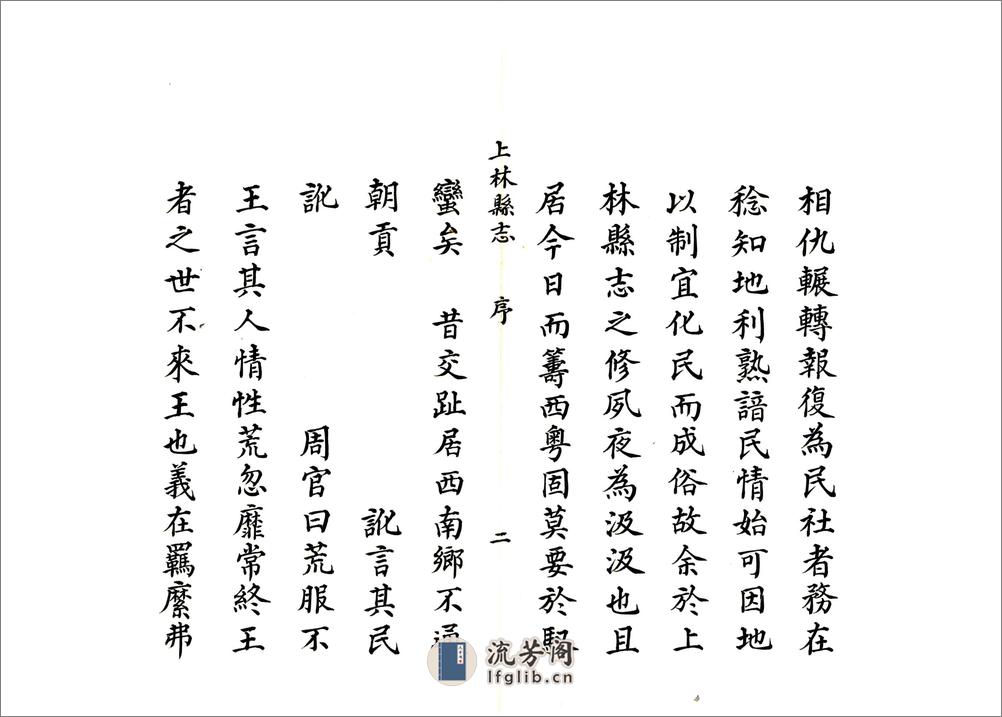 相仇輾轉報復為民社者務在
稔知地利熟諳民情始可因地
以制宜化民而成俗故余於上
林縣志之修夙夜為汲汲也且
居今日而籌西粵固莫要於馭
上林縣志 序 二
蠻矣 昔交趾居西南鄉不通
朝貢 訛言其民
訛 周官曰荒服不
王言其人情性荒忽靡常終王
者之世不來王也義在羈縻弗
流芳阁
lfglib.cn